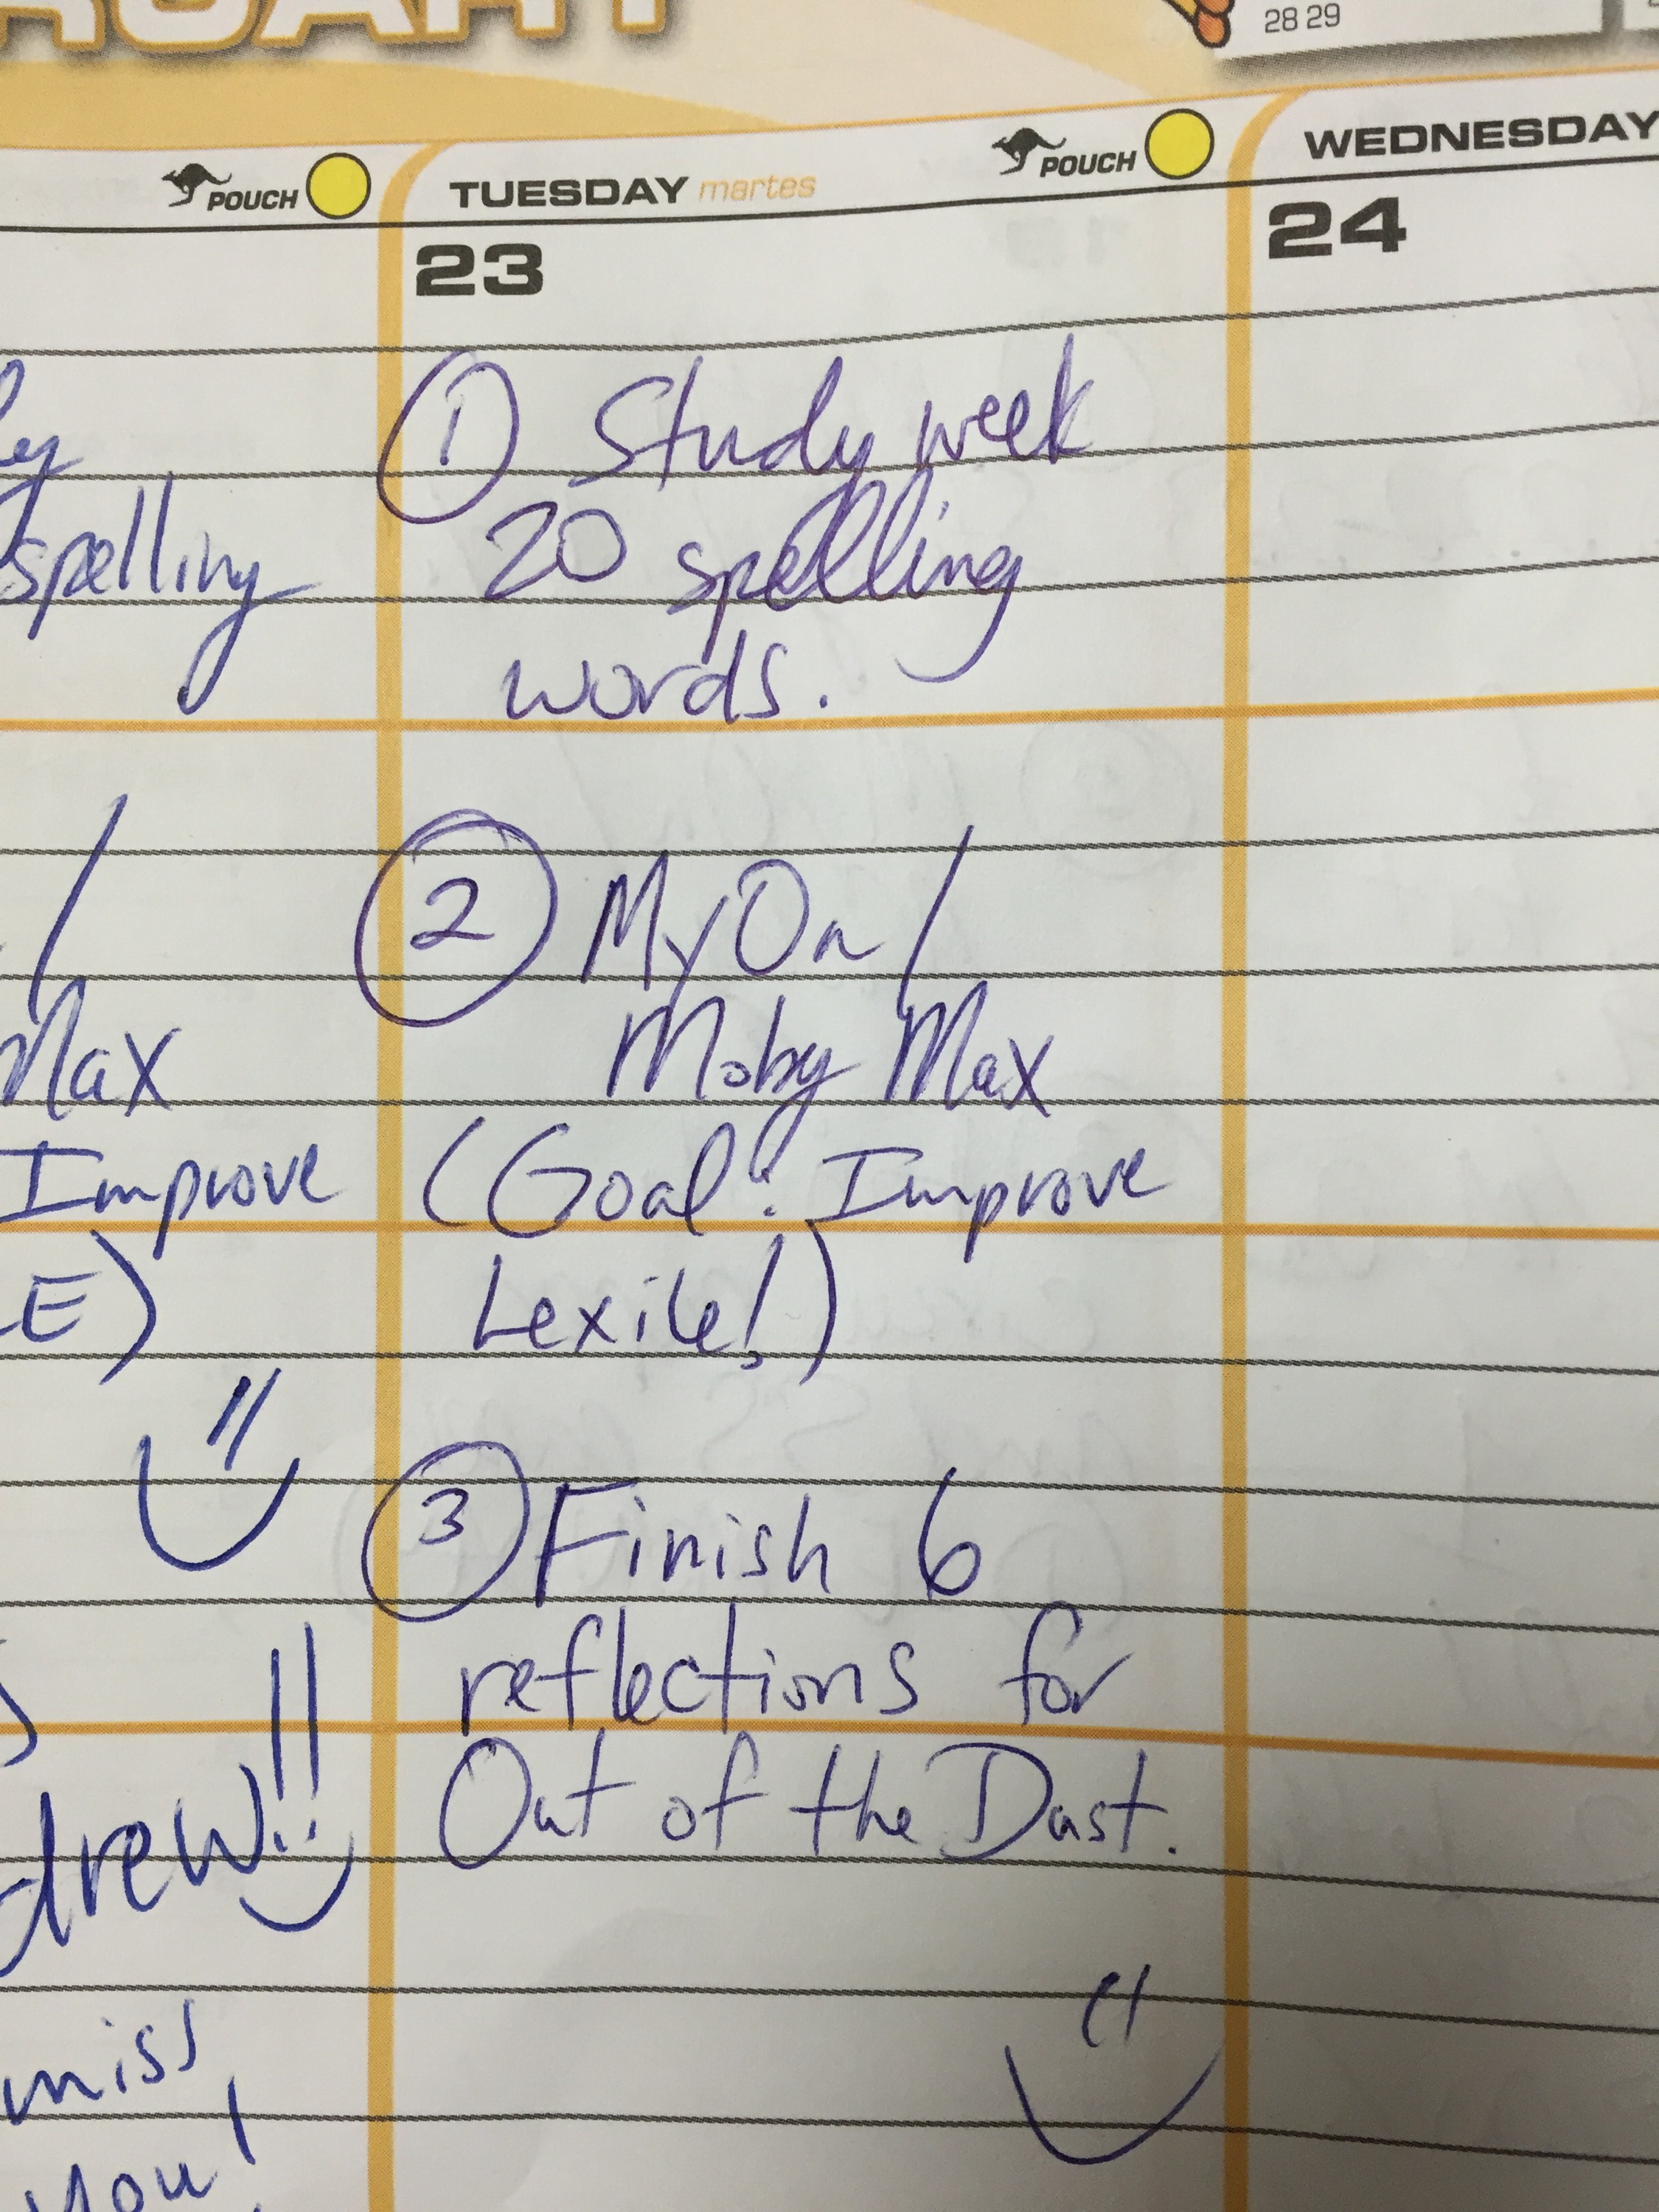 28 29
POUCH
TUESDAY martes
POUCH
WEDNESDAY
23
24
spelling
Max
Improve
E)
drew!!
miss
you!
① Study week
20 spelling
words.
② MyOn/
Moby Max
(Goal: Improve
Lexile!)
③ Finish 6
reflections for
Out of the Dust.